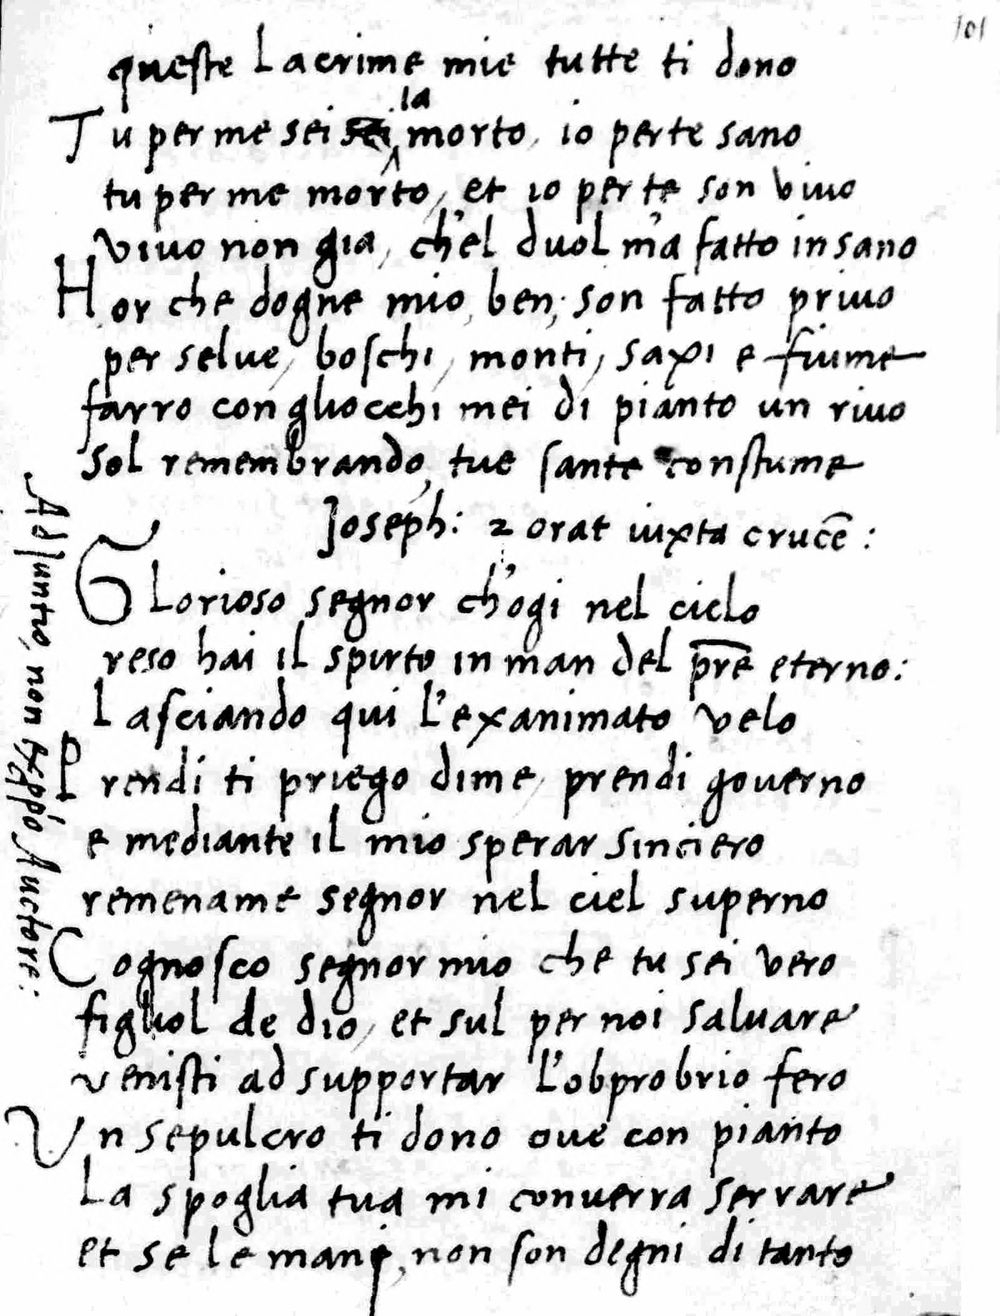 101
queste Lacrime mie tutte ti dono
Tu per me sei sei la morto, io per te sano
tu per me morto, et io per te son vivo
vivo non gia, ch'el duol m'a fatto insano
Hor che dogne mio, ben, son fatto privo
per selve, boschi, monti, saxi e fiume
farro con gliocchi mei di pianto un rivo
Sol remembrando, tue sante constume
Joseph: 2 orat iuxta crucē:
Glorioso segnor ch'ogi nel cielo
reso hai il spirto in man del pr̄e eterno:
Lasciando qui l'exanimato velo
Prendi ti priego dime, prendi governo
e mediante il mio sperar sinciero
remename segnor nel ciel superno
Cognosco segnor mio che tu sei vero
figliol de dio, et sul per noi salvare
venisti ad supportar l'obprobrio fero
Un sepulcro ti dono ove con pianto
La spoglia tua mi converra servare
et se le mane, non son degni di tanto
Adjunto, non Auctore: